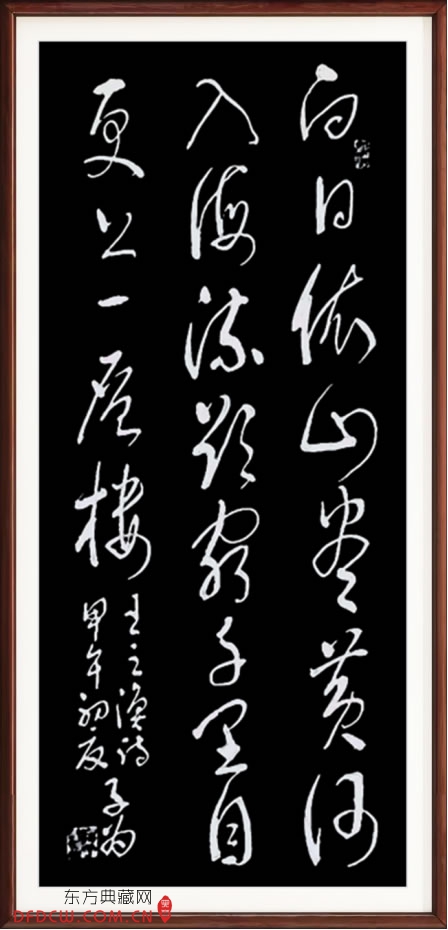 白日依山尽黄河
入海流欲穷千里目
更上一层楼
王之涣诗
甲午初夏
子为
东方典藏网
DFDCW.COM.CN